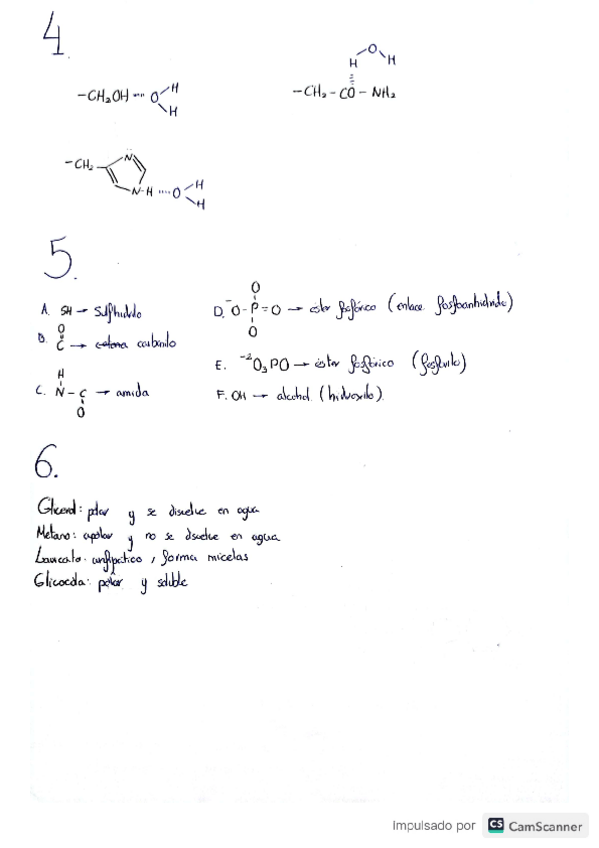 4.
-CH₂OH ···· O H H
H O H
-CH₂-CO-NH₂
-CH₂ N N-H ···· O H H
5.
A. SH → Sulfhidrilo
B. O C → cetona carbonilo
C. H N-C O → amida
D. ⁻O-P=O O O → éster fosfórico (enlace fosfoanhidrido)
E. ⁻²O₃PO → éster fosfórico (fosforilo)
F. OH → alcohol (hidroxilo).
6.
Glicerol: polar y se disuelve en agua
Metano: apolar y no se disuelve en agua
Laurato: anfipático, forma micelas
Glicocola: polar y soluble
Impulsado por CS CamScanner